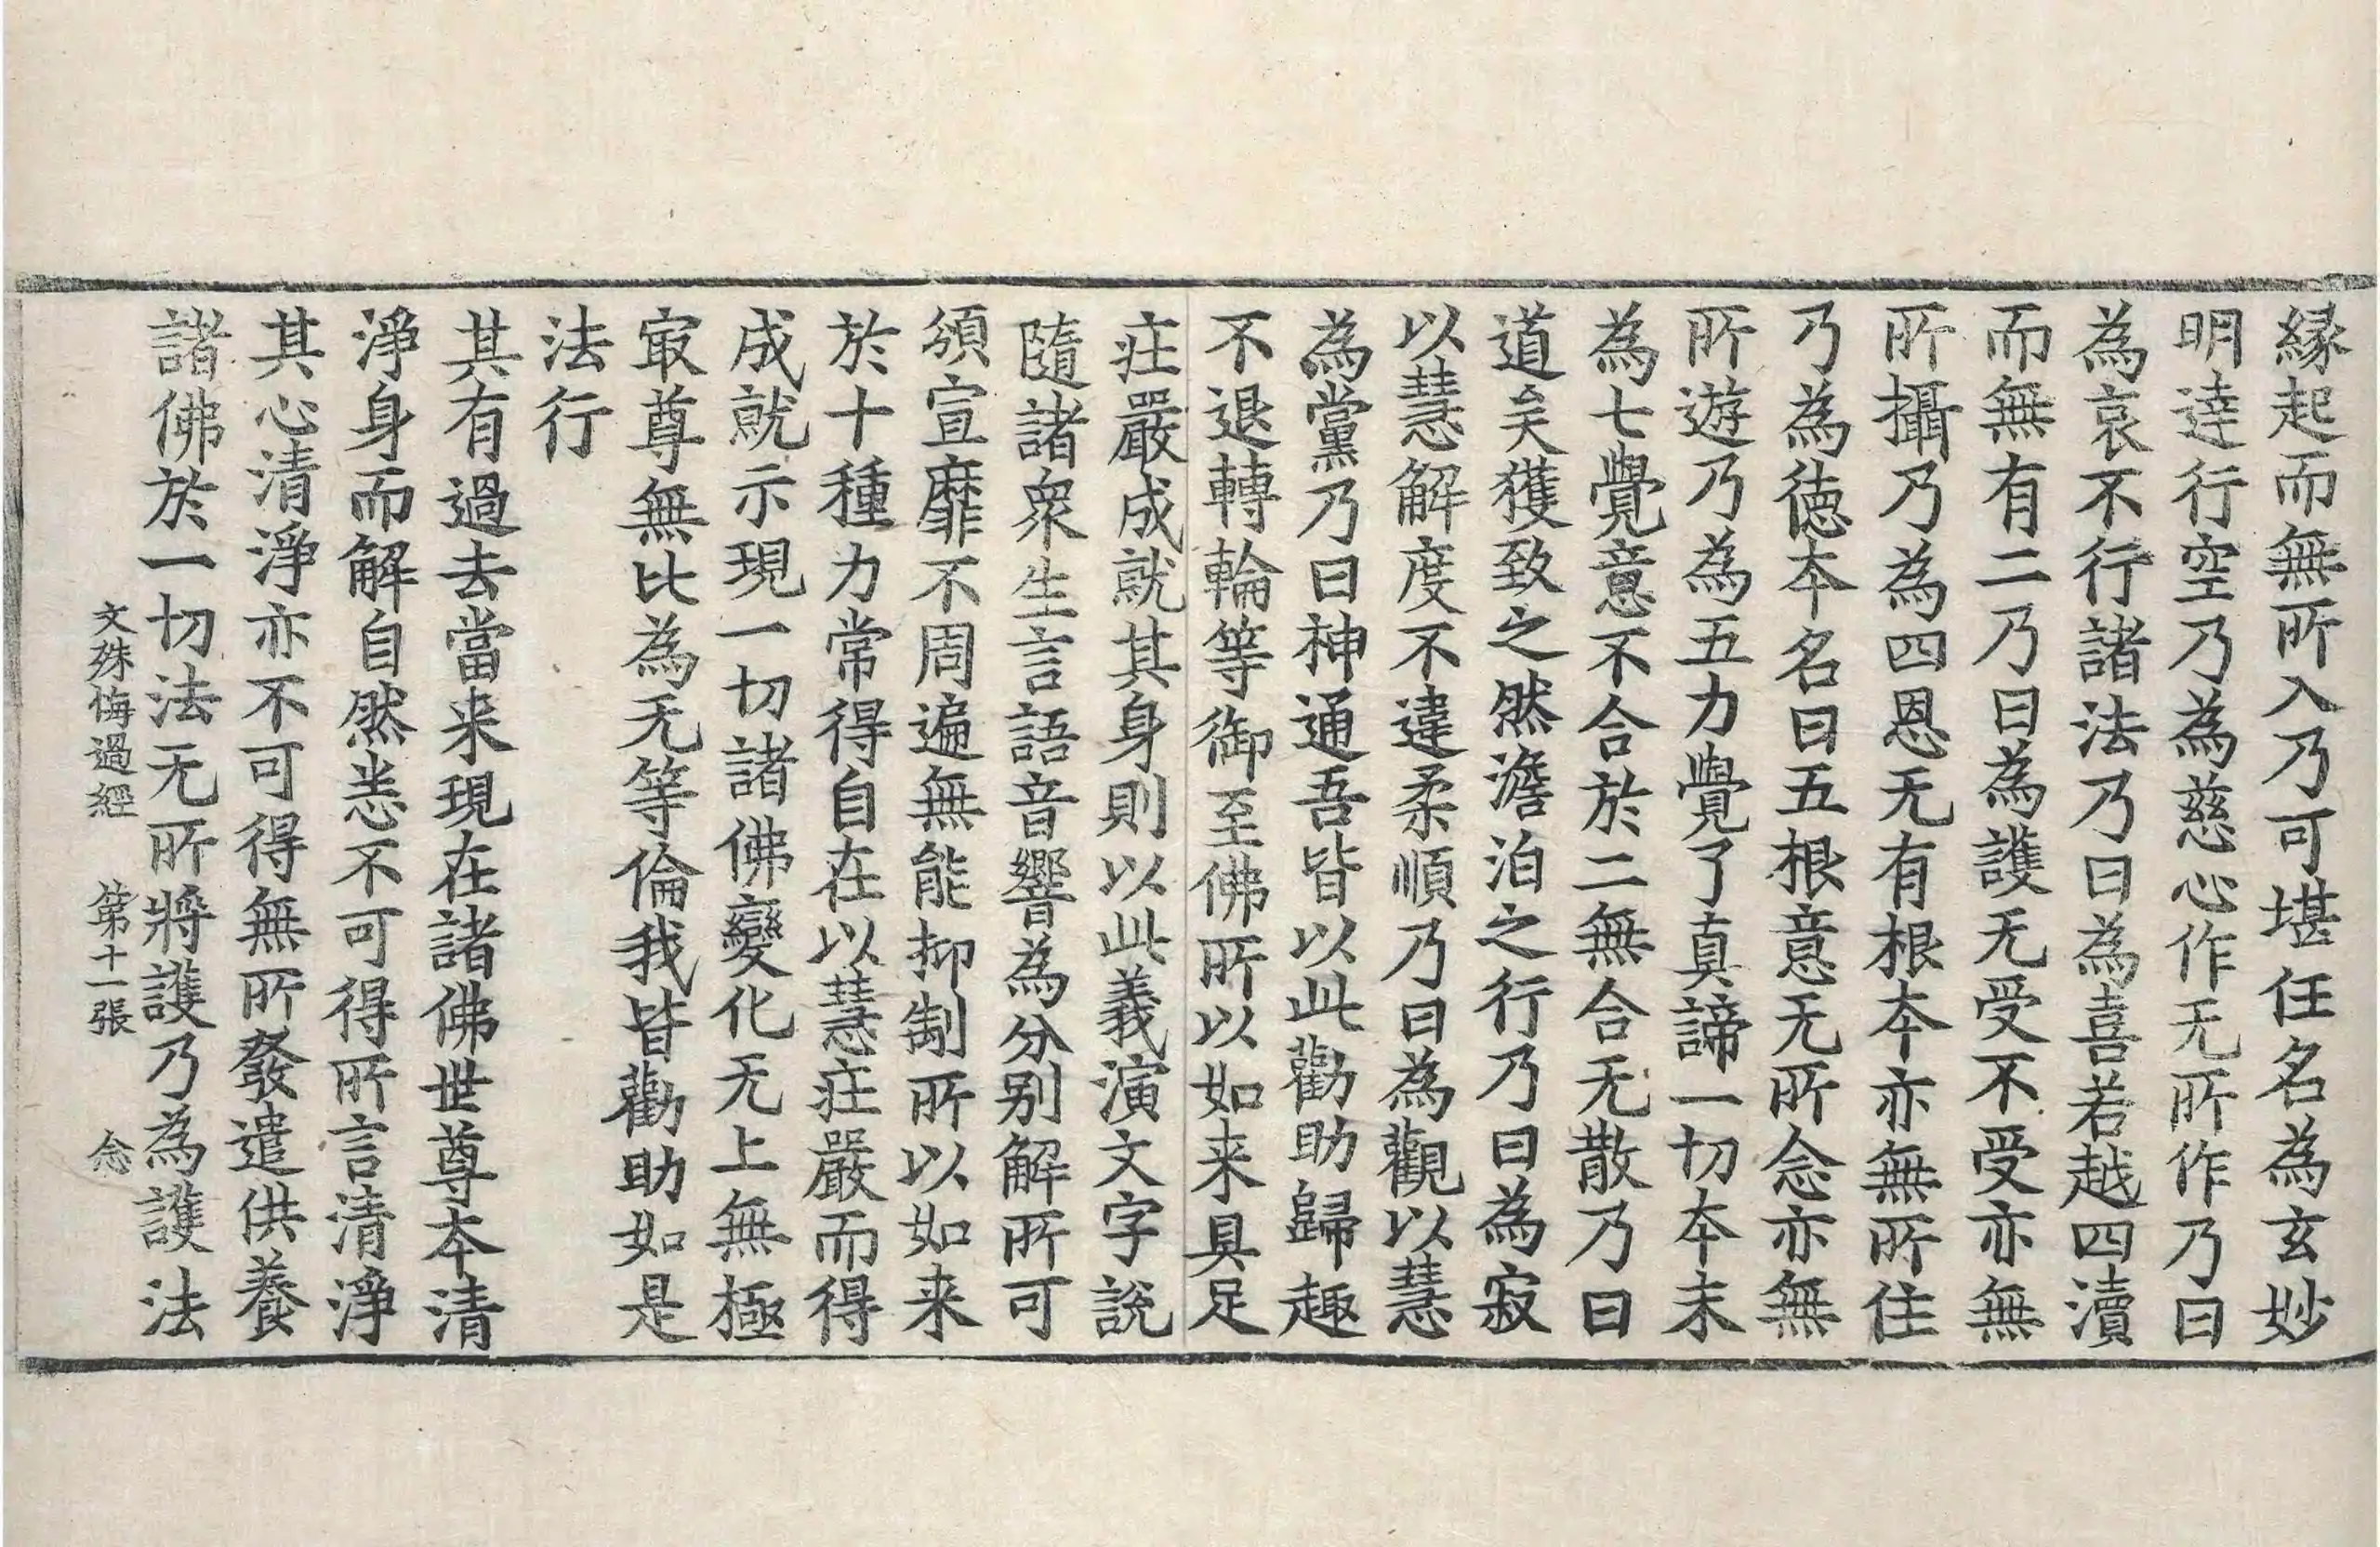 縁起而無所入乃可堪任名為玄妙
明逹行空乃為慈心作无所作乃曰
為哀不行諸法乃曰為喜若越四瀆
而無有二乃曰為護无受不受亦無
所攝乃為四恩无有根本亦無所住
乃為徳本名曰五根意无所念亦無
所遊乃為五力覺了真諦一切本末
為七覺意不合於二無合无散乃曰
道矣獲致之然澹泊之行乃曰為寂
以慧解度不違柔順乃曰為觀以慧
為黨乃曰神通吾皆以此勸助歸趣
不退轉輪等御至佛所以如来具足
莊嚴成就其身則以此義演文字説
隨諸衆生言語音響為分别解所可
頒宣靡不周遍無能抑制所以如来
於十種力常得自在以慧莊嚴而得
成就示現一切諸佛變化无上無極
㝡尊無比為无等倫我皆勸助如是
法行
其有過去當来現在諸佛世尊本清
淨身而解自然恙不可得所言清淨
其心清淨亦不可得無所發遣供養
諸佛於一切法无所將護乃為護法
文殊悔過經 第十一張 念